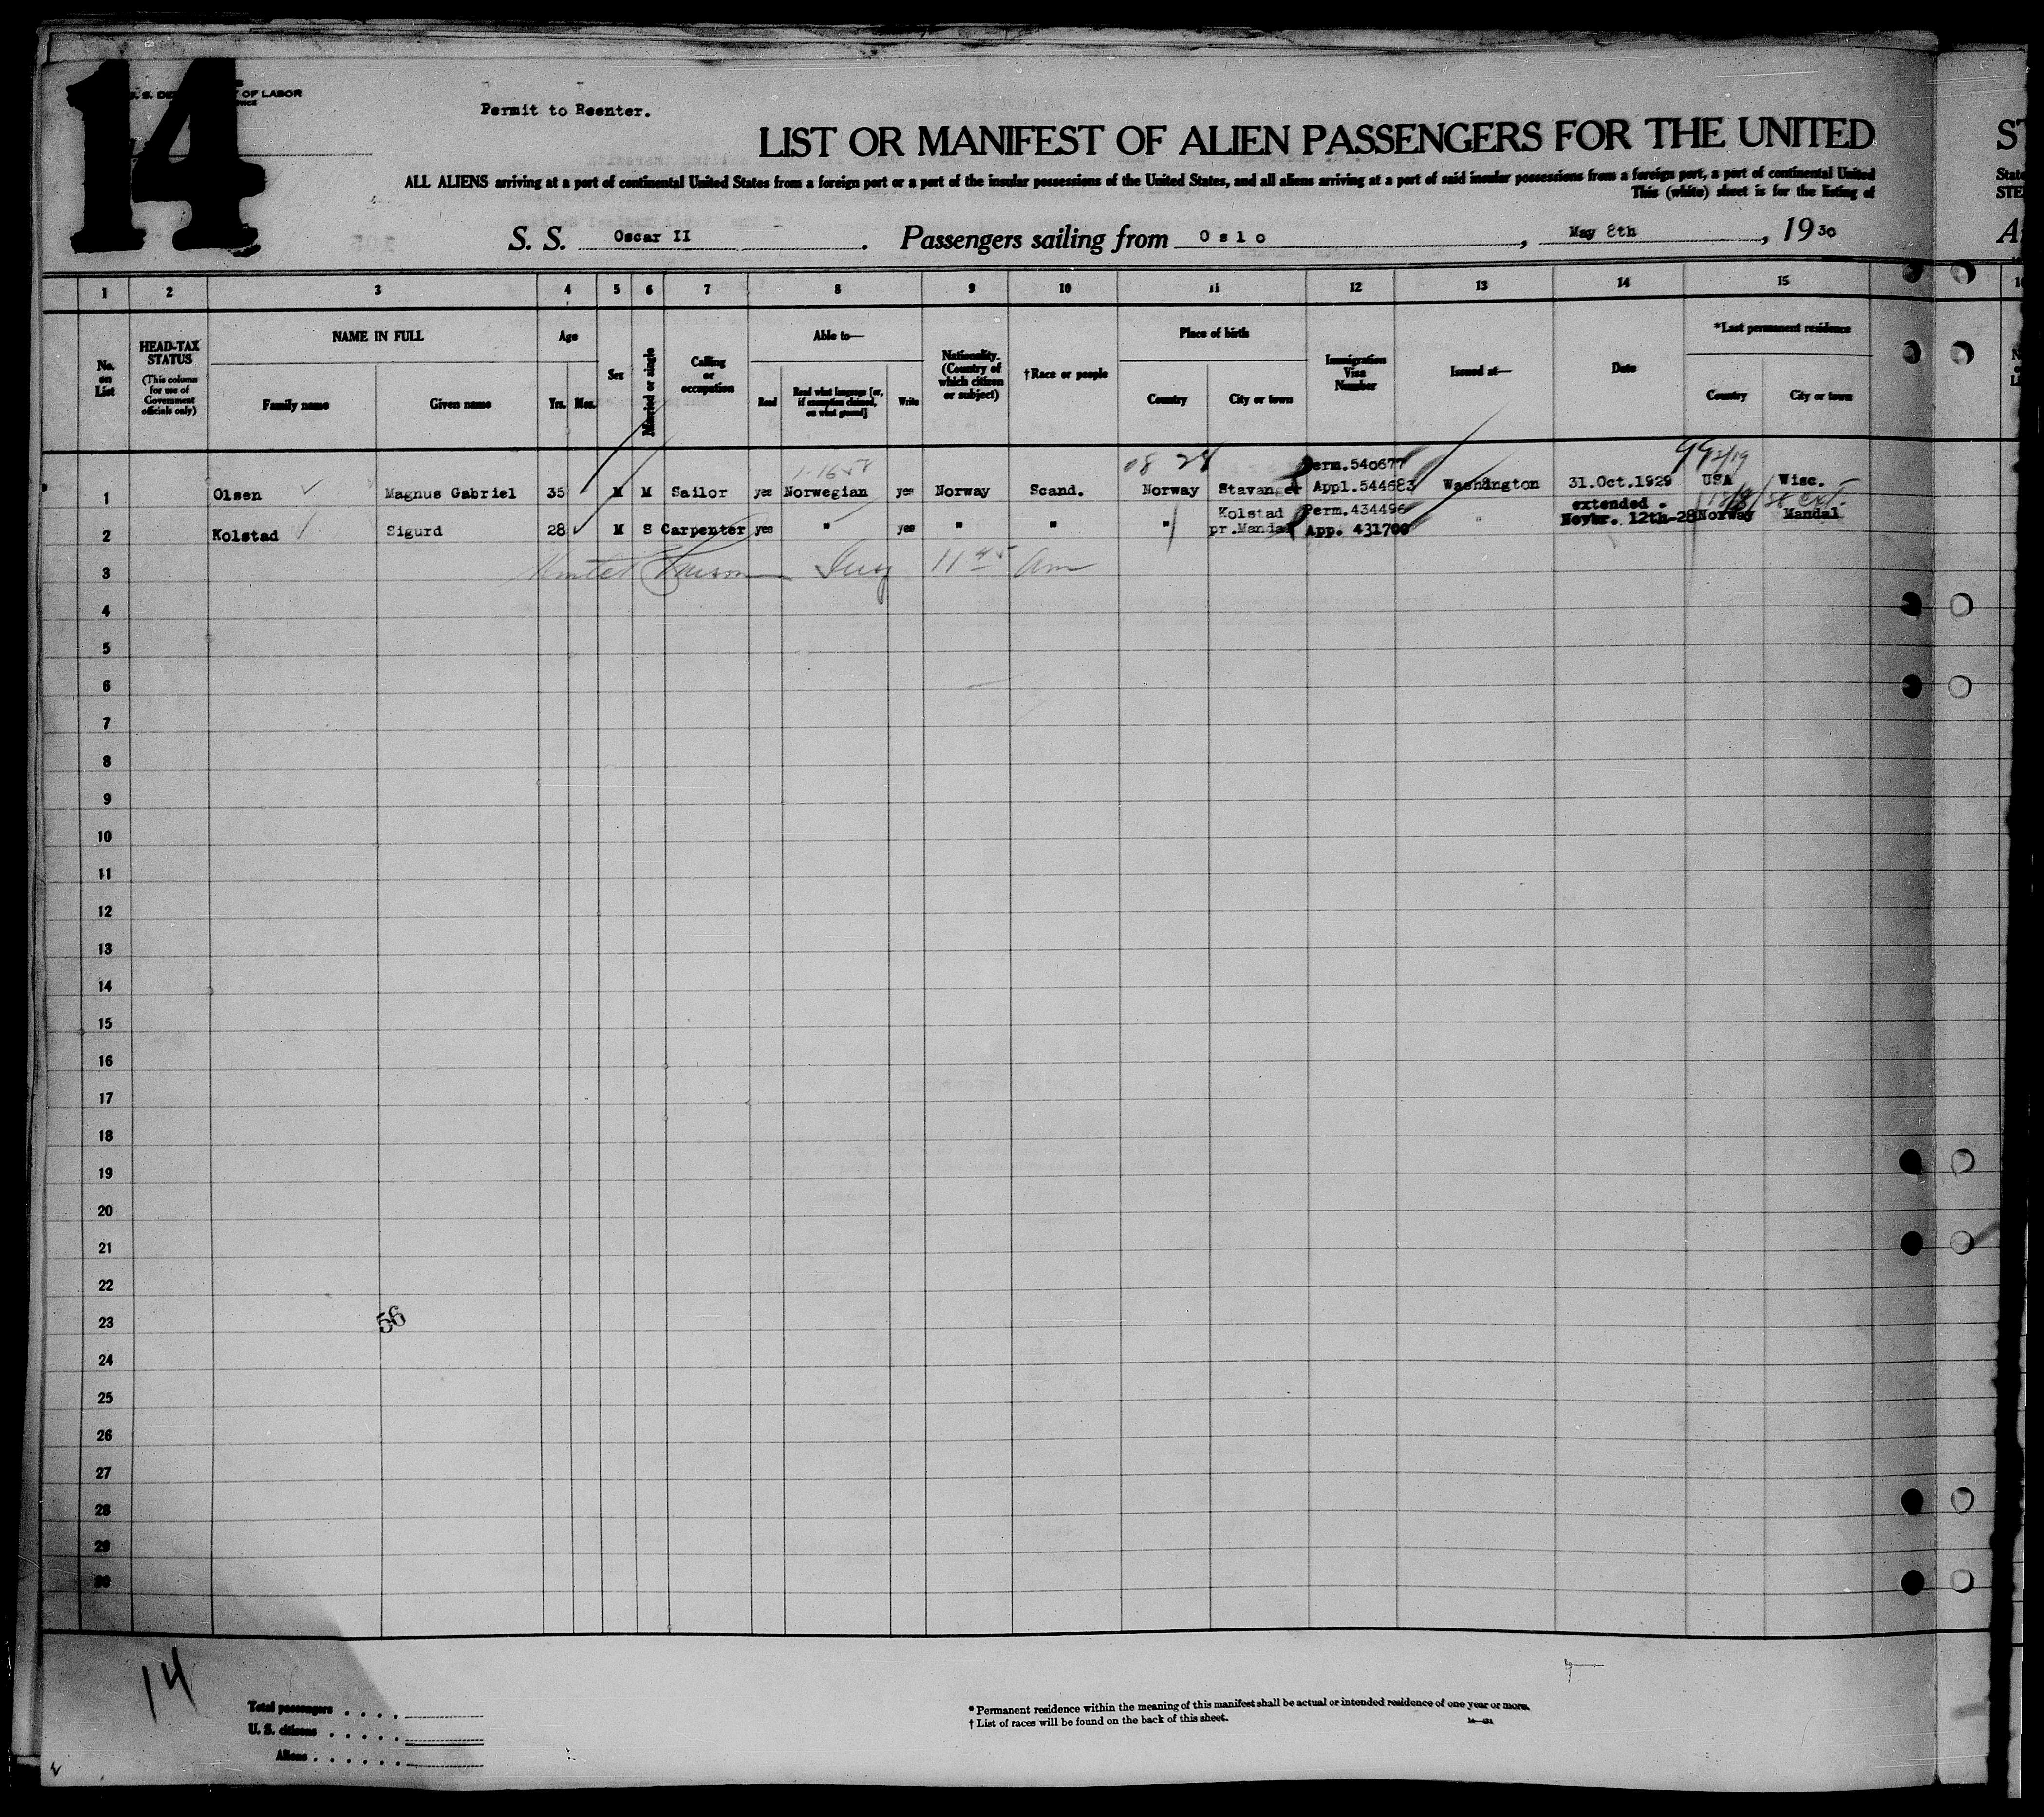 14
U. S. DE OF LABOR
Permit to Reenter.
LIST OR MANIFEST OF ALIEN PASSENGERS FOR THE UNITED
ALL ALIENS arriving at a port of continental United States from a foreign port or a port of the insular possessions of the United States, and all aliens arriving at a port of said insular possessions from a foreign port, a port of continental United
This (white) sheet is for the listing of
S. S. Oscar II . Passengers sailing from Oslo , May 8th , 1930
1 2 3 4 5 6 7 8 9 10 11 12 13 14 15
No. on List
HEAD-TAX STATUS
(This column for use of Government officials only)
NAME IN FULL
Family name
Given name
Age
Yrs. Mos.
Sex
Married or single
Calling or occupation
Able to—
Read
Read what language [or, if exemption claimed, on what ground]
Write
Nationality. (Country of which citizen or subject)
†Race or people
Place of birth
Country
City or town
Immigration Visa Number
Issued at—
Date
*Last permanent residence
Country
City or town
Perm.540677
1 Olsen Magnus Gabriel 35 M M Sailor yes Norwegian yes Norway Scand. Norway Stavanger Appl.544683 Washington 31.Oct.1929 USA Wisc.
Kolstad Perm.434496 extended.
2 Kolstad Sigurd 28 M S Carpenter yes " yes " " " pr.Mandal App. 431700 " Novbr. 12th-28 Norway Mandal
3 11 45 am
4
5
6
7
8
9
10
11
12
13
14
15
16
17
18
19
20
21
22
23 56
24
25
26
27
28
29
30
14
Total passengers . . . .
U. S. citizens . . . . .
Aliens . . . . . .
* Permanent residence within the meaning of this manifest shall be actual or intended residence of one year or more.
† List of races will be found on the back of this sheet.
ST
State
STE